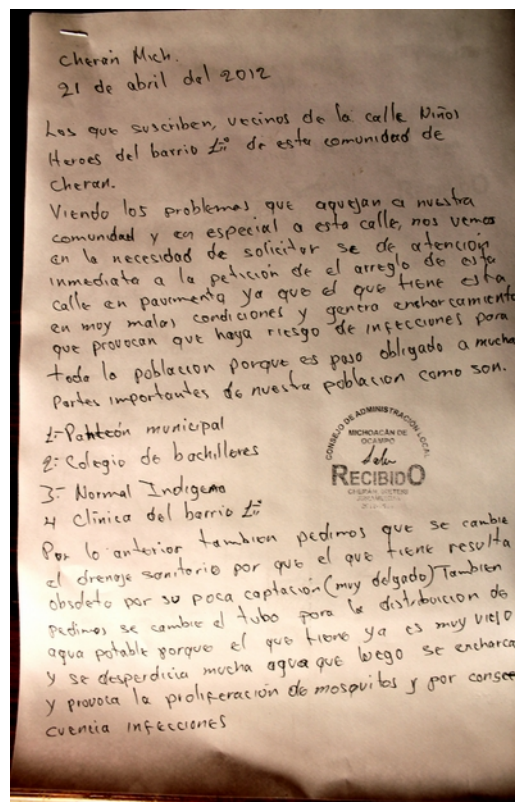 Cherán Mich.
21 de abril del 2012
Los que suscriben, vecinos de la calle Niños
Heroes del barrio 1º de esta comunidad de
Cheran.
Viendo los problemas que aquejan a nuestra
comunidad y en especial a esta calle, nos vemos
en la necesidad de solicitar se de atención
inmediata a la petición de el arreglo de esta
calle en pavimento ya que el que tiene esta
en muy malas condiciones y genera encharcamiento
que provocan que haya riesgo de infecciones para
toda la poblacion porque es paso obligado a mucha
Partes importantes de nuestra poblacion como son.
1-Panteón municipal
2- Colegio de bachilleres
3- Normal Indigena
4 Clinica del barrio 1º
CONSEJO DE ADMINISTRACIÓN LOCAL
MICHOACÁN DE
OCAMPO
RECIBIDO
Por lo anterior tambien pedimos que se cambie
el drenaje sanitario por que el que tiene resulta
obsoleto por su poca captación (muy delgado) Tambien
pedimos se cambie el tubo para la distribuicion de
agua potable porque el que tiene ya es muy viejo
y se desperdicia mucha agua que luego se encharca
y provoca la proliferación de mosquitos y por conse
cuencia infecciones